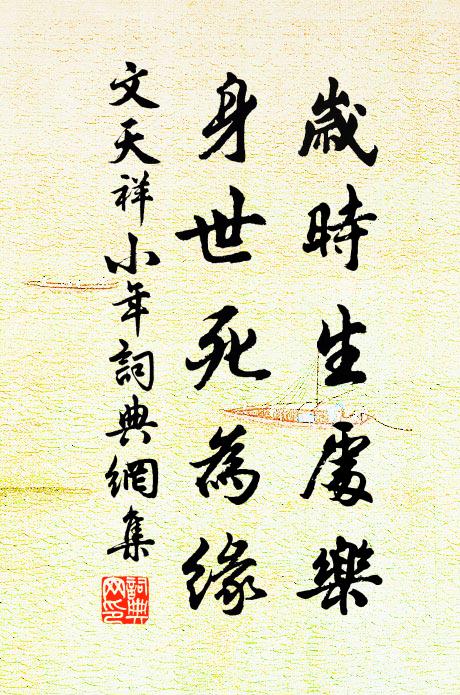 歲時生處樂
身世死為緣
文天祥小年詞典網集
詞典网印